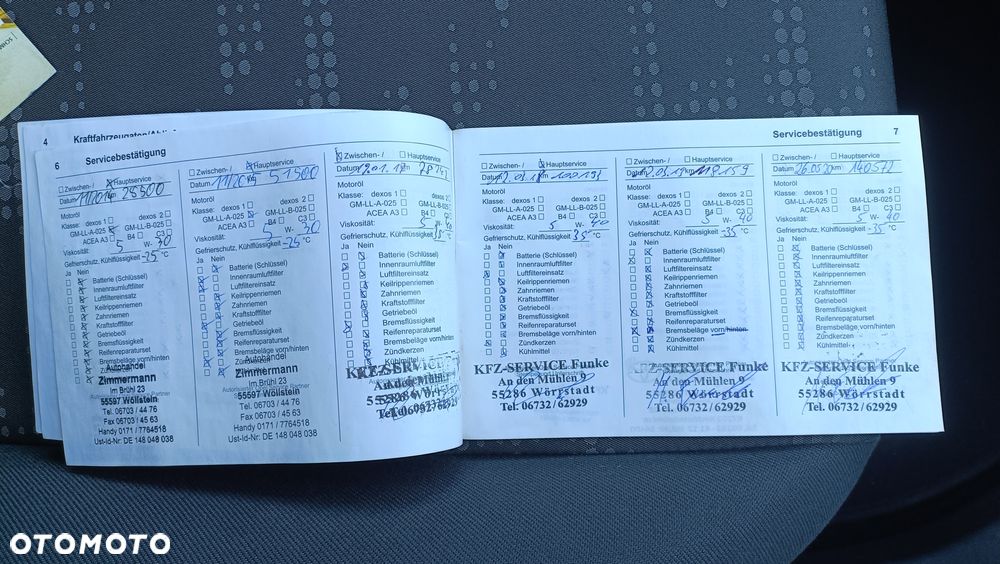 4 Kraftfahrzeugdaten/
6 Servicebestätigung
Zwischen-/ Hauptservice
Datum 11/2014 km 28500
Motoröl
Klasse: dexos 1 dexos 2
GM-LL-A-025 GM-LL-B-025
ACEA A3 B4 C3
Viskosität: 5 W- 30
Gefrierschutz, Kühlflüssigkeit -25 °C
Ja Nein
Batterie (Schlüssel)
Innenraumluftfilter
Luftfiltereinsatz
Keilrippenriemen
Zahnriemen
Kraftstofffilter
Getriebeöl
Bremsflüssigkeit
Reifenreparaturset
Bremsbeläge vorn/hinten
Zündkerzen
Autohandel
Zimmermann
Im Brühl 23
55597 Wöllstein
Tel. 06703 / 44 76
Fax 06703 / 45 63
Handy 0171 / 7764518
Ust-Id-Nr: DE 148 048 038
Zwischen-/ Hauptservice
Datum km 51500
Motoröl
Klasse: dexos 1 dexos 2
GM-LL-A-025 GM-LL-B-025
ACEA A3 B4 C3
Viskosität: 5 W- 30
Gefrierschutz, Kühlflüssigkeit -25 °C
Ja Nein
Batterie (Schlüssel)
Innenraumluftfilter
Luftfiltereinsatz
Keilrippenriemen
Zahnriemen
Kraftstofffilter
Getriebeöl
Bremsflüssigkeit
Reifenreparaturset
Bremsbeläge vorn/hinten
Zündkerzen
Zimmermann
Im Brühl 23
55597 Wöllstein
Tel. 06703 / 44 76
Fax 06703 / 45 63
Handy 0171 / 7764518
Ust-Id-Nr: DE 148 048 038
Zwischen-/ Hauptservice
Datum km
Motoröl
Klasse: dexos 1 dexos 2
GM-LL-A-025 GM-LL-B-025
ACEA A3 B4 C3
Viskosität: 5 W- 40
Gefrierschutz, Kühlflüssigkeit °C
Ja Nein
Batterie (Schlüssel)
Innenraumluftfilter
Luftfiltereinsatz
Keilrippenriemen
Zahnriemen
Kraftstofffilter
Getriebeöl
Bremsflüssigkeit
Reifenreparaturset
Bremsbeläge vorn/hinten
Zündkerzen
Kühlmittel
KFZ-SERVICE
An den Mühlen
55286 Wörrstadt
Tel. 06732/62929
Servicebestätigung 7
Zwischen-/ Hauptservice
Datum km
Motoröl
Klasse: dexos 1 dexos 2
GM-LL-A-025 GM-LL-B-025
ACEA A3 B4 C3
Viskosität: 5 W- 40
Gefrierschutz, Kühlflüssigkeit 35 °C
Ja Nein
Batterie (Schlüssel)
Innenraumluftfilter
Luftfiltereinsatz
Keilrippenriemen
Zahnriemen
Kraftstofffilter
Getriebeöl
Bremsflüssigkeit
Reifenreparaturset
Bremsbeläge vorn/hinten
Zündkerzen
Kühlmittel
KFZ-SERVICE Funke
An den Mühlen 9
55286 Wörrstadt
Tel. 06732/62929
Zwischen-/ Hauptservice
Datum km
Motoröl
Klasse: dexos 1 dexos 2
GM-LL-A-025 GM-LL-B-025
ACEA A3 B4 C3
Viskosität: 5 W- 40
Gefrierschutz, Kühlflüssigkeit -35 °C
Ja Nein
Batterie (Schlüssel)
Innenraumluftfilter
Luftfiltereinsatz
Keilrippenriemen
Zahnriemen
Kraftstofffilter
Getriebeöl
Bremsflüssigkeit
Reifenreparaturset
Bremsbeläge vorn/hinten
Zündkerzen
Kühlmittel
KFZ-SERVICE Funke
An den Mühlen 9
55286 Wörrstadt
Tel. 06732/62929
Zwischen-/ Hauptservice
Datum 26.05.20 km 140572
Motoröl
Klasse: dexos 1 dexos 2
GM-LL-A-025 GM-LL-B-025
ACEA A3 B4 C3
Viskosität: 5 W- 40
Gefrierschutz, Kühlflüssigkeit -35 °C
Ja Nein
Batterie (Schlüssel)
Innenraumluftfilter
Luftfiltereinsatz
Keilrippenriemen
Zahnriemen
Kraftstofffilter
Getriebeöl
Bremsflüssigkeit
Reifenreparaturset
Bremsbeläge vorn/hinten
Zündkerzen
Kühlmittel
KFZ-SERVICE Funke
An den Mühlen 9
55286 Wörrstadt
Tel. 06732/62929
OTOMOTO